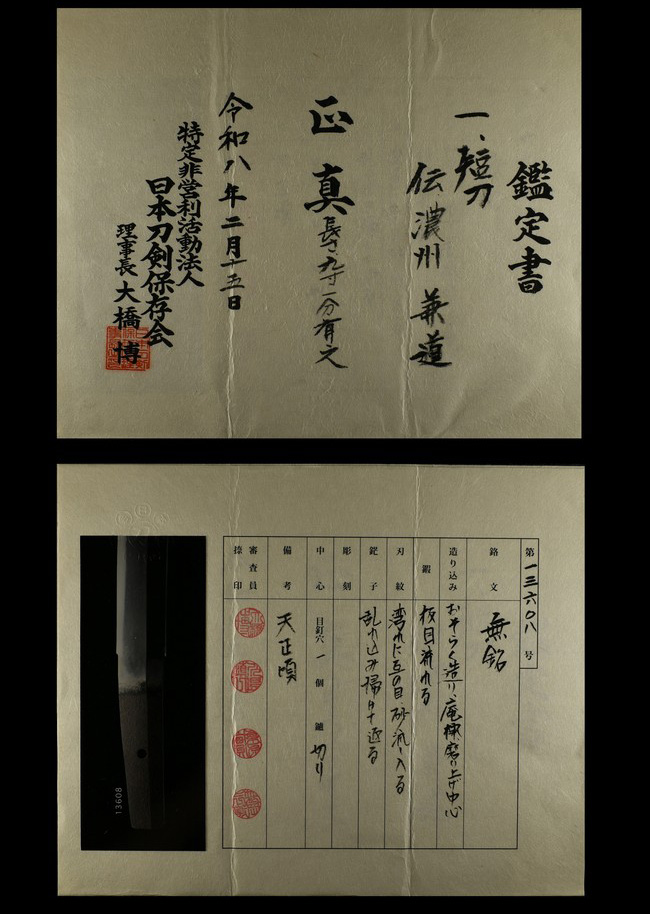 鑑定書
一、短刀
伝 濃州 兼道
正真 長さ九寸一分有之
令和八年二月十五日
特定非営利活動法人
日本刀剣保存会
理事長 大橋 博
第一三六〇八号
銘文 無銘
造り込み おそらく造り、庵棟磨り上げ中心
鍛 板目流れる
刃紋 湾れに互の目、砂流し入る
鋩子 乱れ込み帰り返る
彫刻
中心 目釘穴 一個 鑢 切り
備考 天正頃
審査員
捺印
13608